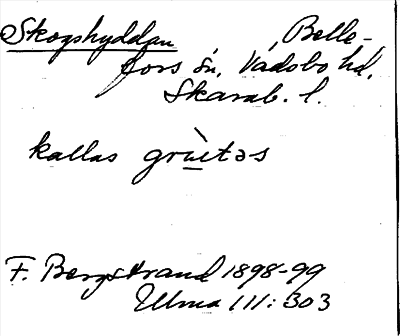 Skogshyddan Belle-
fors sn, Vadsbo hd,
Skarab. l.
kallas grùetəs
F. Bergstrand 1898-99
Ulma 111:303